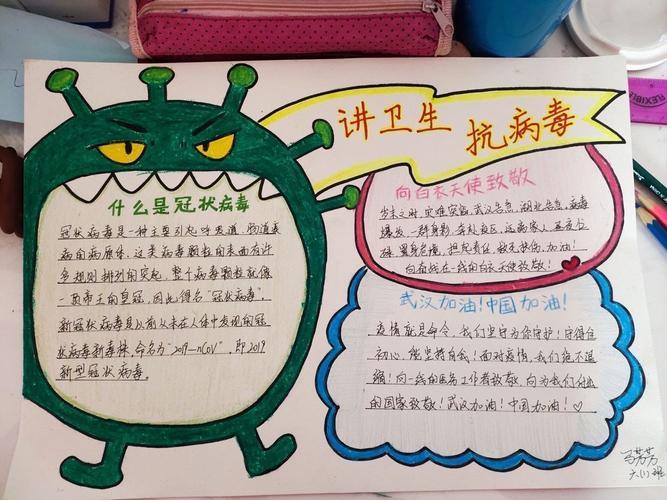 讲卫生 抗病毒
什么是冠状病毒
冠状病毒是一种主要引起呼吸道、肠道疾
病的病原体，这类病毒颗粒的表面有许
多规则排列的突起，整个病毒颗粒就像
一顶帝王的皇冠，因此得名“冠状病毒”。
新冠状病毒是以前从未在人体中发现的冠
状病毒新毒株，命名为“2019-nCoV”，即2019
新型冠状病毒。
向白衣天使致敬
岁末之时，灾难突临，武汉告急，湖北告急，病毒
爆发，一群身影，奔赴疫区，
置身危境，担起责任，救死扶伤，加油！
向奋战在一线的白衣天使致敬！
武汉加油！中国加油！
疫情就是命令，我们坚守为你守护！守得住
初心，能坚持自我！面对疫情，我们绝不退
缩！向一线的医务工作者致敬，向为我们付出
的国家致敬！武汉加油！中国加油！
马芳芳
六(1)班
FLEXIBLE